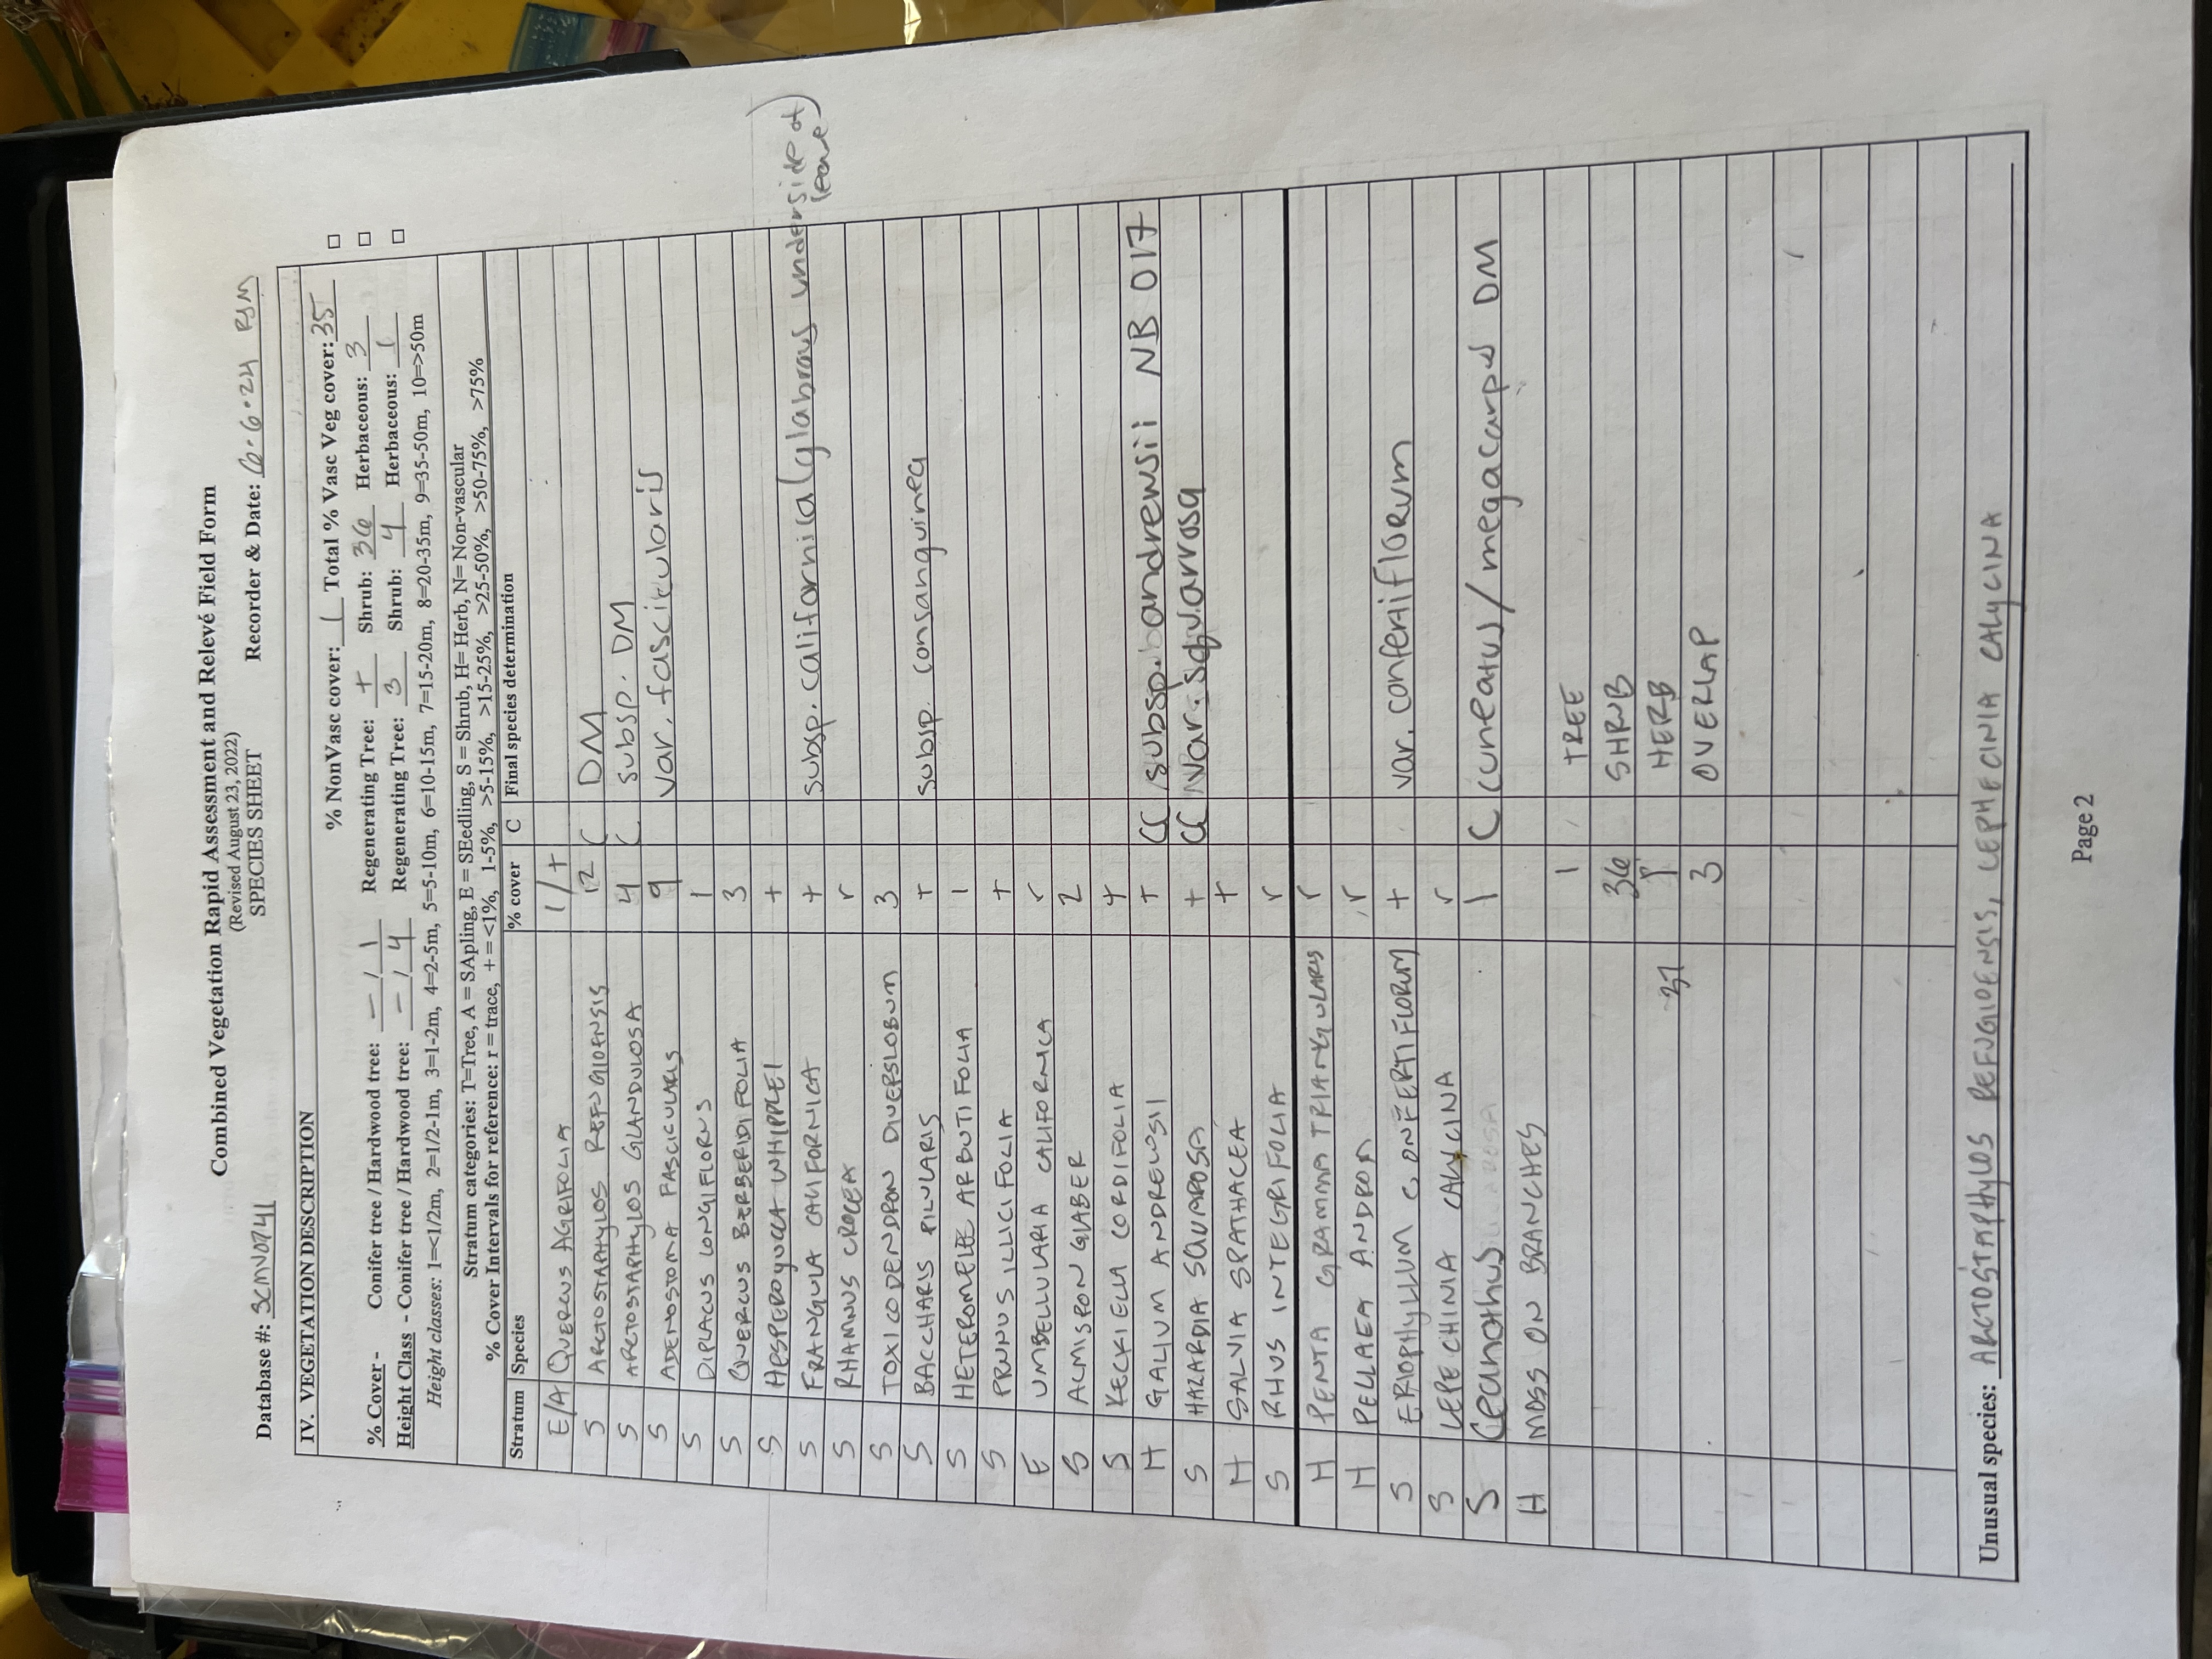 Combined Vegetation Rapid Assessment and Relevé Field Form
(Revised August 23, 2022)
SPECIES SHEET
Database #: 3CMV0741 Recorder & Date: 6.6.24 RSM
IV. VEGETATION DESCRIPTION
% NonVasc cover: 1 Total % Vasc Veg cover: 35
% Cover - Conifer tree / Hardwood tree: — / 1 Regenerating Tree: + Shrub: 36 Herbaceous: 3
Height Class - Conifer tree / Hardwood tree: — / 4 Regenerating Tree: 3 Shrub: 4 Herbaceous: 1
Height classes: 1=<1/2m, 2=1/2-1m, 3=1-2m, 4=2-5m, 5=5-10m, 6=10-15m, 7=15-20m, 8=20-35m, 9=35-50m, 10=>50m
Stratum categories: T=Tree, A = SApling, E = SEedling, S = Shrub, H= Herb, N= Non-vascular
% Cover Intervals for reference: r = trace, + = <1%, 1-5%, >5-15%, >15-25%, >25-50%, >50-75%, >75%
Stratum Species % cover C Final species determination
E/A QUERCUS AGRIFOLIA 1/+
S ARCTOSTAPHYLOS REFUGIOENSIS 12 C DM
S ARCTOSTAPHYLOS GLANDULOSA 4 C subsp. DM
S ADENOSTOMA FASCICULARIS 9 var. fascicularis
S DIPLACUS LONGIFLORUS 1
S QUERCUS BERBERIDIFOLIA 3
S HESPEROYUCCA WHIPPLEI +
S FRANGULA CALIFORNICA + subsp. californica (glabrous underside of leave)
S RHAMNUS CROCEA r
S TOXICODENDRON DIVERSLOBUM 3
S BACCHARIS PILULARIS + subsp. consanguinea
S HETEROMELEE ARBUTIFOLIA 1
S PRUNUS ILLICIFOLIA +
E UMBELLULARIA CALIFORNICA r
S ACMISPON GLABER 2
S KECKIELLA CORDIFOLIA +
H GALIUM ANDREWSII + CC subsp. andrewsii NB 017
S HAZARDIA SQUAROSA + CC var. squarrosa
H SALVIA SPATHACEA +
S RHUS INTEGRIFOLIA r
H PENTA GRAMMA TRIANGULARIS r
H PELLAEA ANDROM r
S ERIOPHYLLUM CONFERTIFLORUM + var. confertiflorum
S LEPECHINIA CALYCINA r
S Ceanothus 1 C cuneatus/megacarpus DM
H MOSS ON BRANCHES
1 TREE
36 SHRUB
37 1 HERB
3 OVERLAP
Unusual species: ARCTOSTAPHYLOS REFUGIOENSIS, LEPHECINIA CALYCINA
Page 2